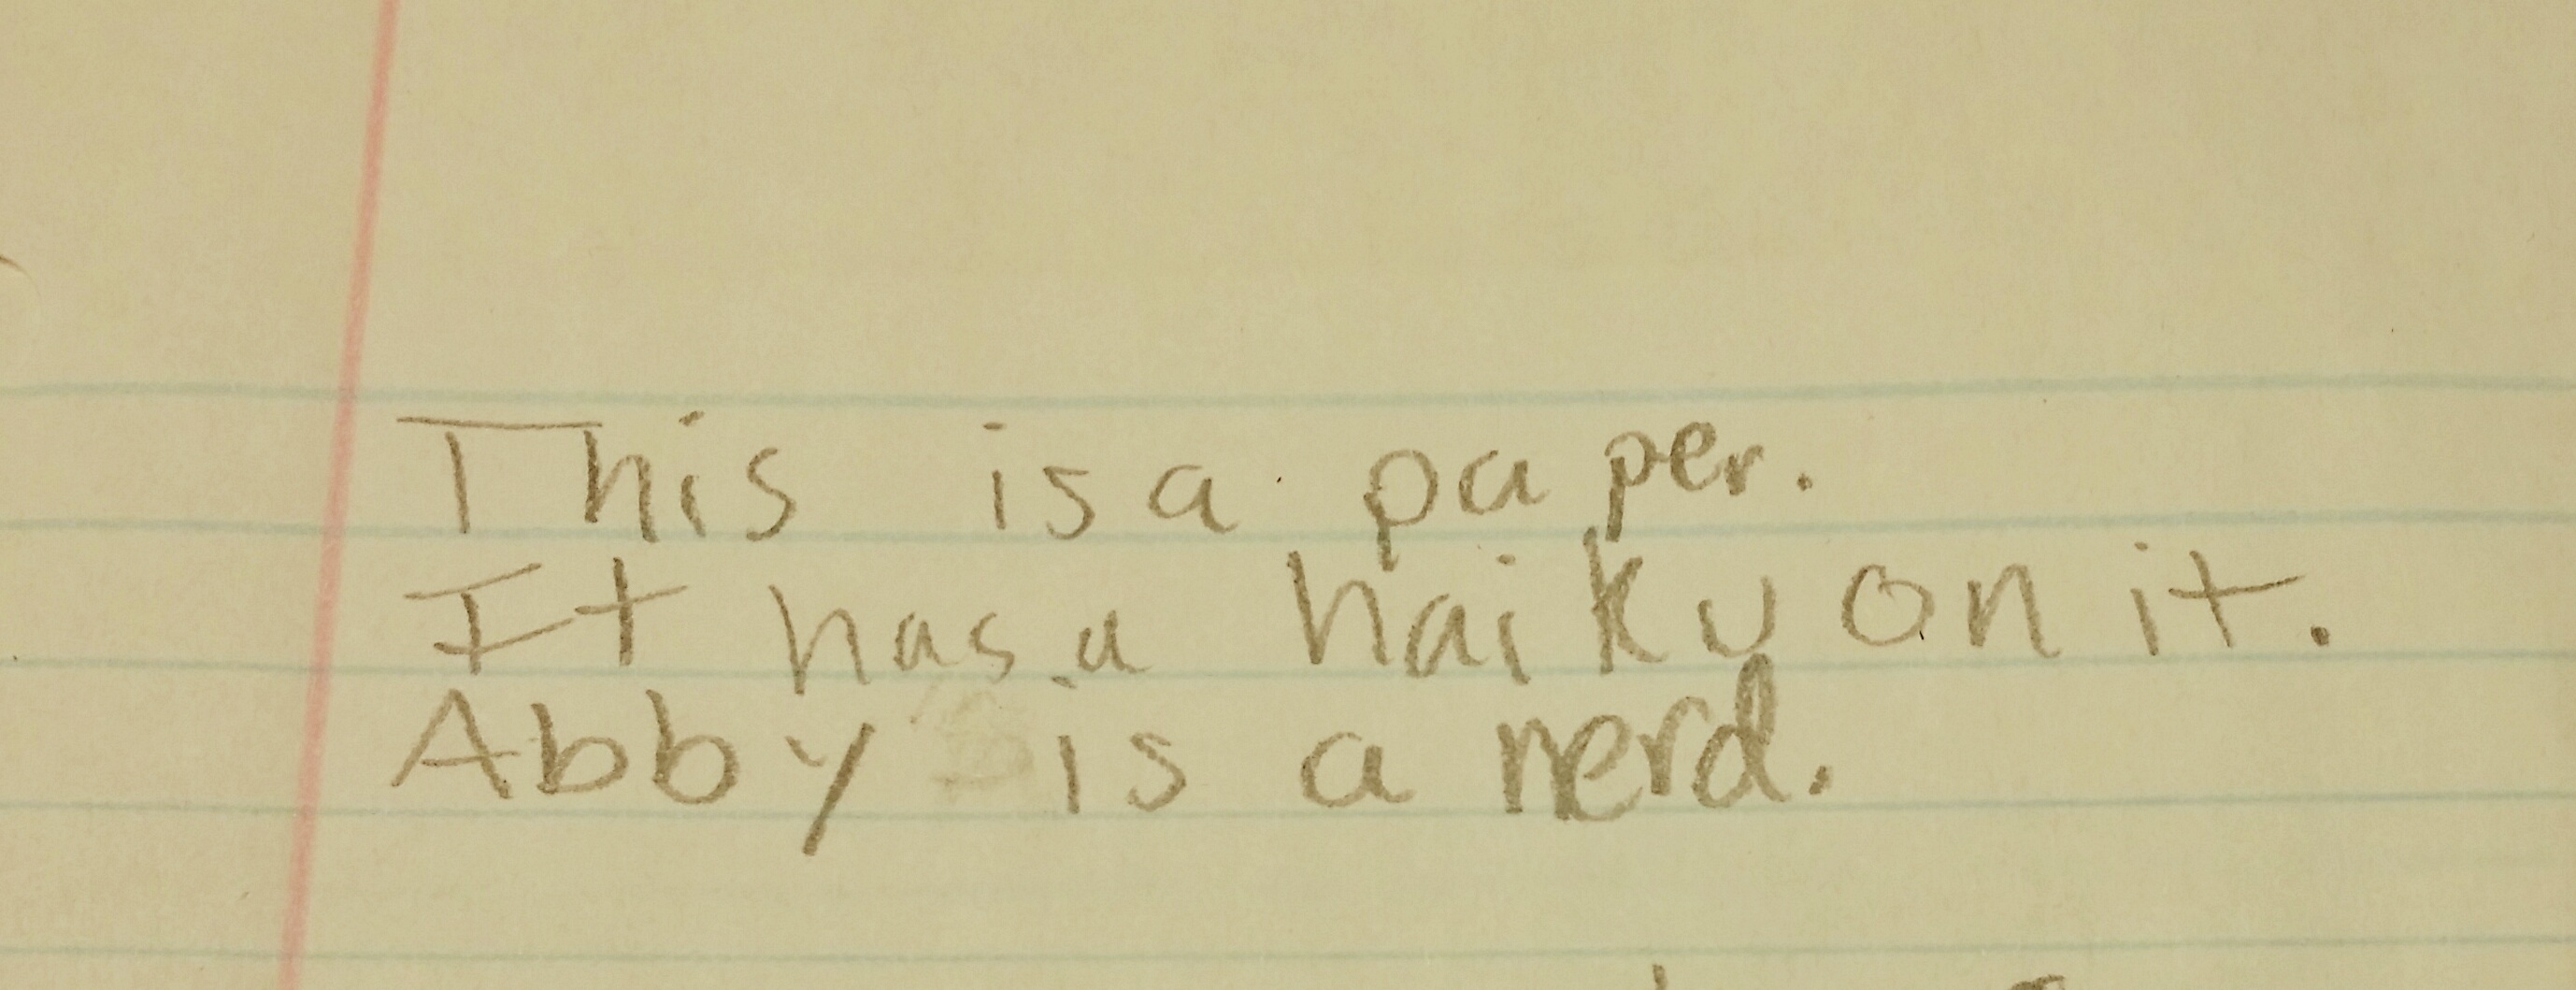 This is a paper.
It has a haiku on it.
Abby is a nerd.